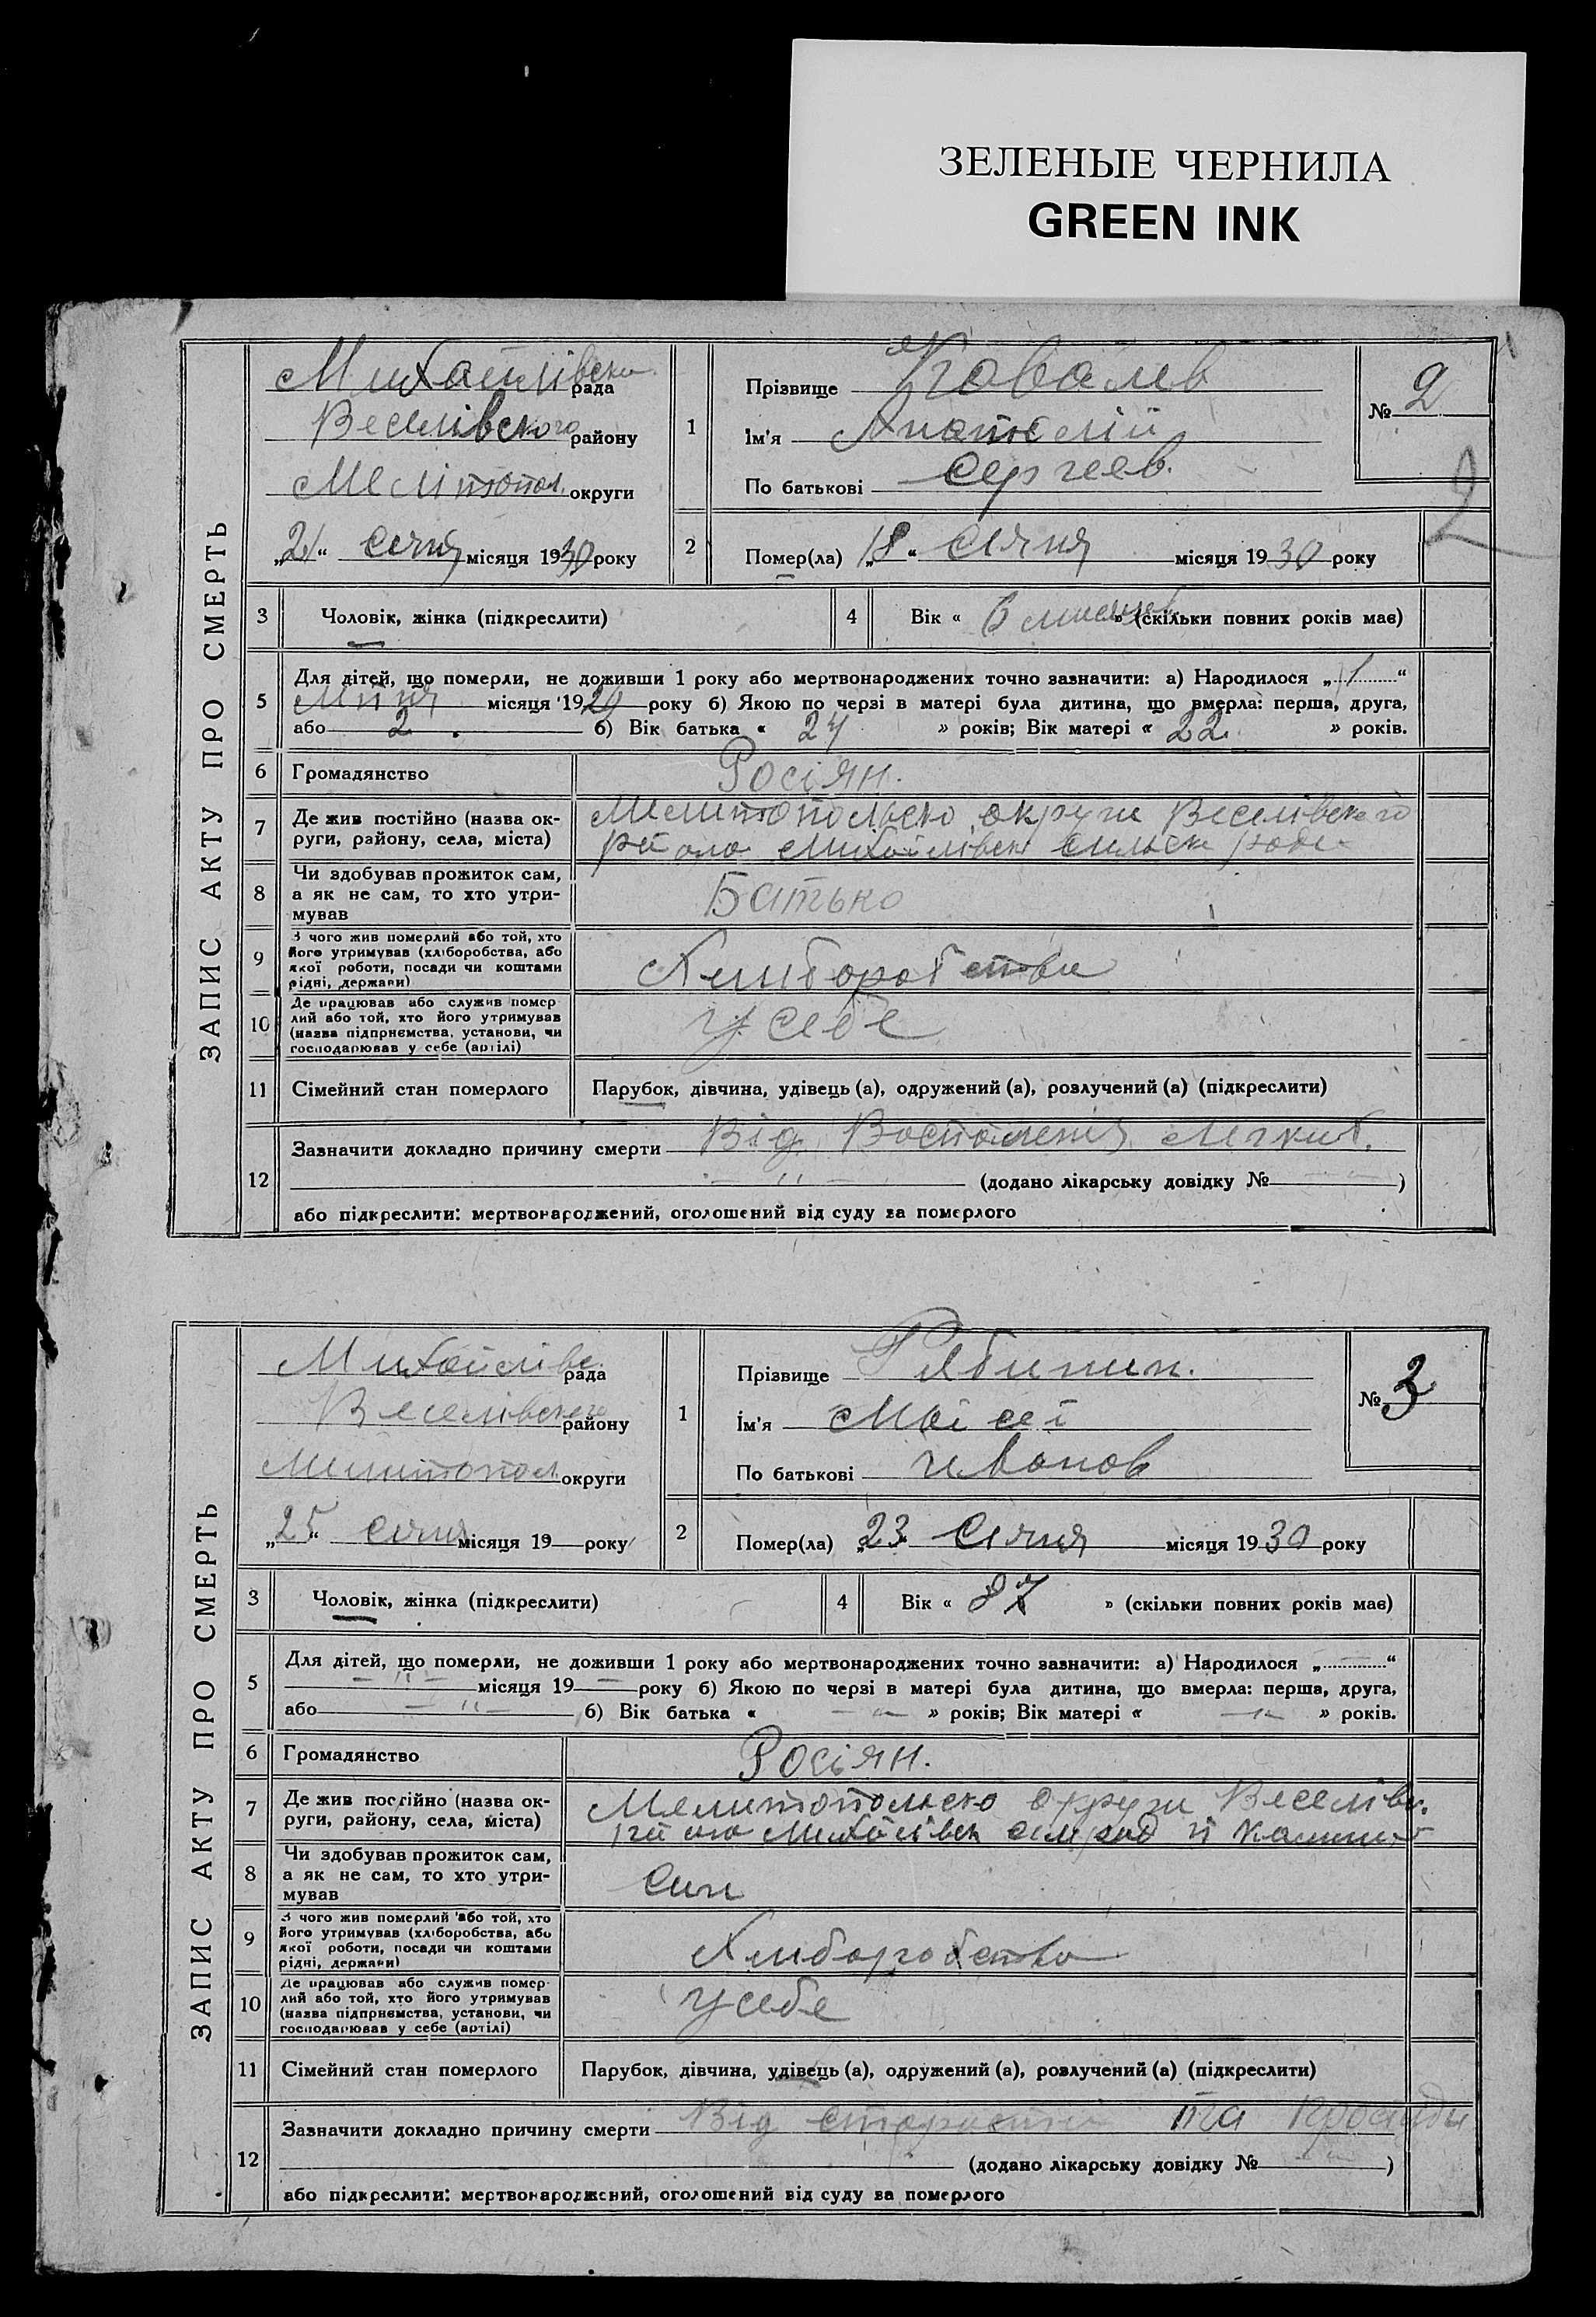 ЗЕЛЕНЫЕ ЧЕРНИЛА
GREEN INK
ЗАПИС АКТУ ПРО СМЕРТЬ
Михайлівськ. рада
Веселівського району
Мелітопол. округи
„21“ січня місяця 1930 року
1
Прізвище Ковалев
Ім'я Анатолій
По батькові Сергеев.
№ 2
2
2 Помер(ла) „18“ Січня місяця 1930 року
3 Чоловік, жінка (підкреслити)
4 Вік « 6 » (скільки повних років має)
5 Для дітей, що померли, не доживши 1 року або мертвонароджених точно зазначити: а) Народилося „1“
місяця 1929 року б) Якою по черзі в матері була дитина, що вмерла: перша, друга,
або 2. б) Вік батька « 24 » років; Вік матері « 22 » років.
6 Громадянство Росіян.
7 Де жив постійно (назва ок-
руги, району, села, міста)
Мелитопольсько округи Веселівського
Михайлівськ
8 Чи здобував прожиток сам,
а як не сам, то хто утри-
мував
Батько
9 З чого жив померлий або той, хто
його утримував (хліборобства, або
якої роботи, посади чи коштами
рідні, держави)
Хлиборобства
10 Де працював або служив помер
лий або той, хто його утримував
(назва підприємства, установи, чи
господарював у себе (артілі)
У себе
11 Сімейний стан померлого Парубок, дівчина, удівець (а), одружений (а), розлучений (а) (підкреслити)
12 Зазначити докладно причину смерти Від Воспаления Легких.
— " — (додано лікарську довідку № — )
або підкреслити: мертвонароджений, оголошений від суду за померлого
ЗАПИС АКТУ ПРО СМЕРТЬ
Михайлівс. рада
Веселівського району
Мелитопол. округи
„25“ січня місяця 19 року
1
Прізвище Рябинин.
Ім'я Моісеі
По батькові Иванов
№ 3
2 Помер(ла) „23“ Січня місяця 1930 року
3 Чоловік, жінка (підкреслити)
4 Вік « 87 » (скільки повних років має)
5 Для дітей, що померли, не доживши 1 року або мертвонароджених точно зазначити: а) Народилося „ — “
— " — місяця 19 — року б) Якою по черзі в матері була дитина, що вмерла: перша, друга,
або — " — б) Вік батька « — " — » років; Вік матері « — " — » років.
6 Громадянство Росіян.
7 Де жив постійно (назва ок-
руги, району, села, міста)
Мелитопольсько округи Веселівс.
Михайлівськ
8 Чи здобував прожиток сам,
а як не сам, то хто утри-
мував
Син
9 З чого жив померлий або той, хто
його утримував (хліборобства, або
якої роботи, посади чи коштами
рідні, держави)
Хлиборобство
10 Де працював або служив помер-
лий або той, хто його утримував
(назва підприємства, установи, чи
господарював у себе (артілі)
У себе
11 Сімейний стан померлого Парубок, дівчина, удівець (а), одружений (а), розлучений (а) (підкреслити)
12 Зазначити докладно причину смерти Від старости та Простуди
(додано лікарську довідку № — )
або підкреслити: мертвонароджений, оголошений від суду за померлого